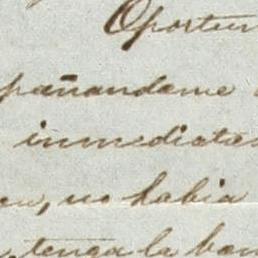 Oportun
pañandome
inmediata
en, no habia
tenga la bon